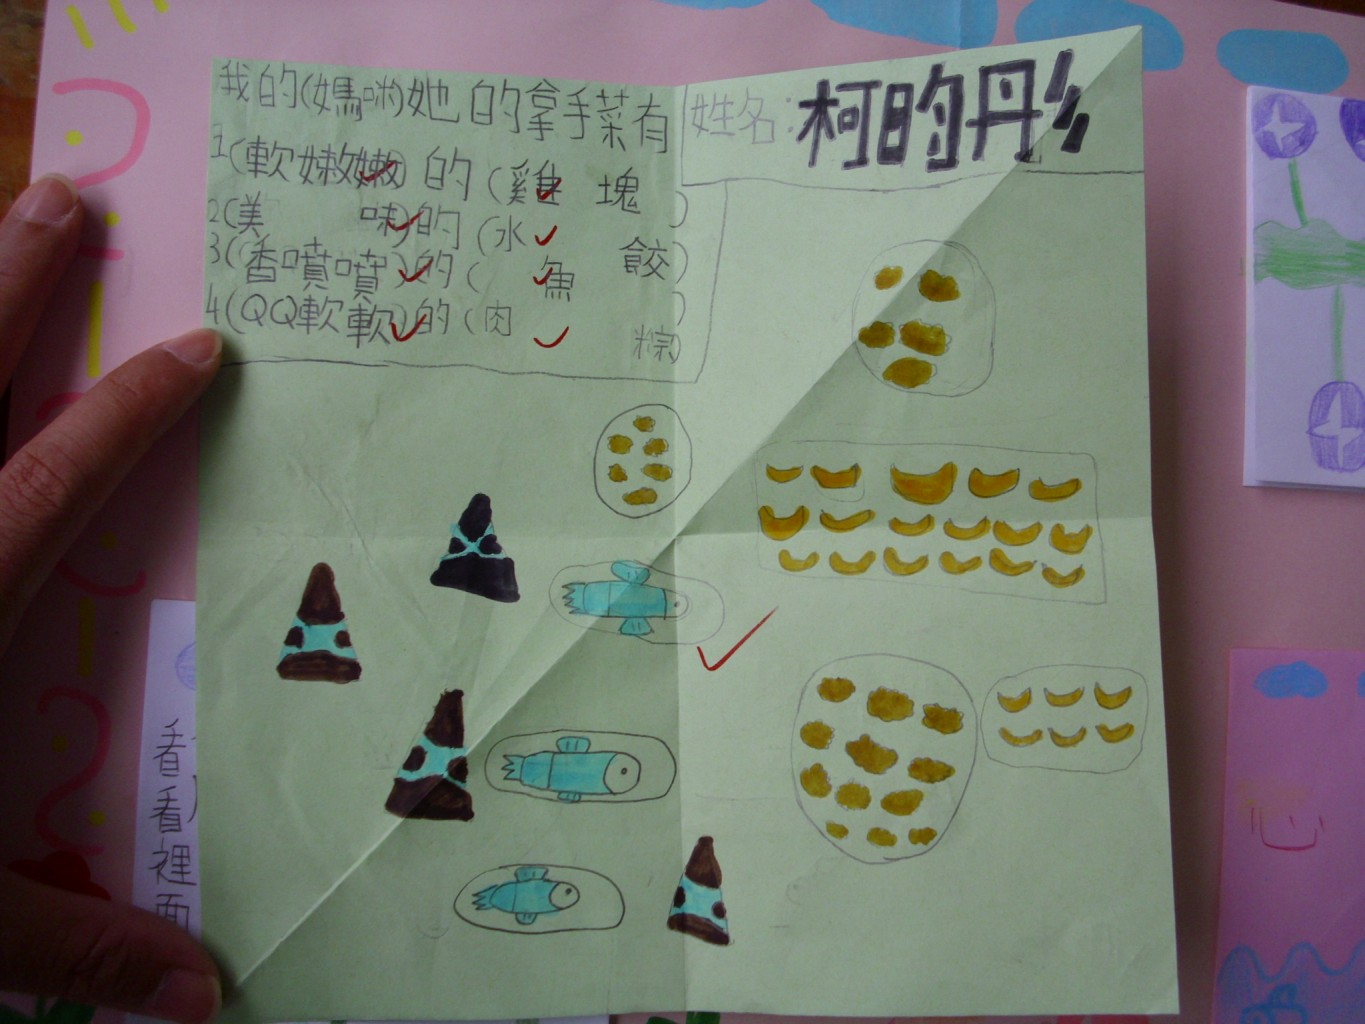 我的(媽咪)她的拿手菜有
1(軟嫩嫩)的(雞塊)
2(美味)的(水餃)
3(香噴噴)的(魚)
4(QQ軟軟)的(肉粽)
姓名:柯昀彤
看看裡面